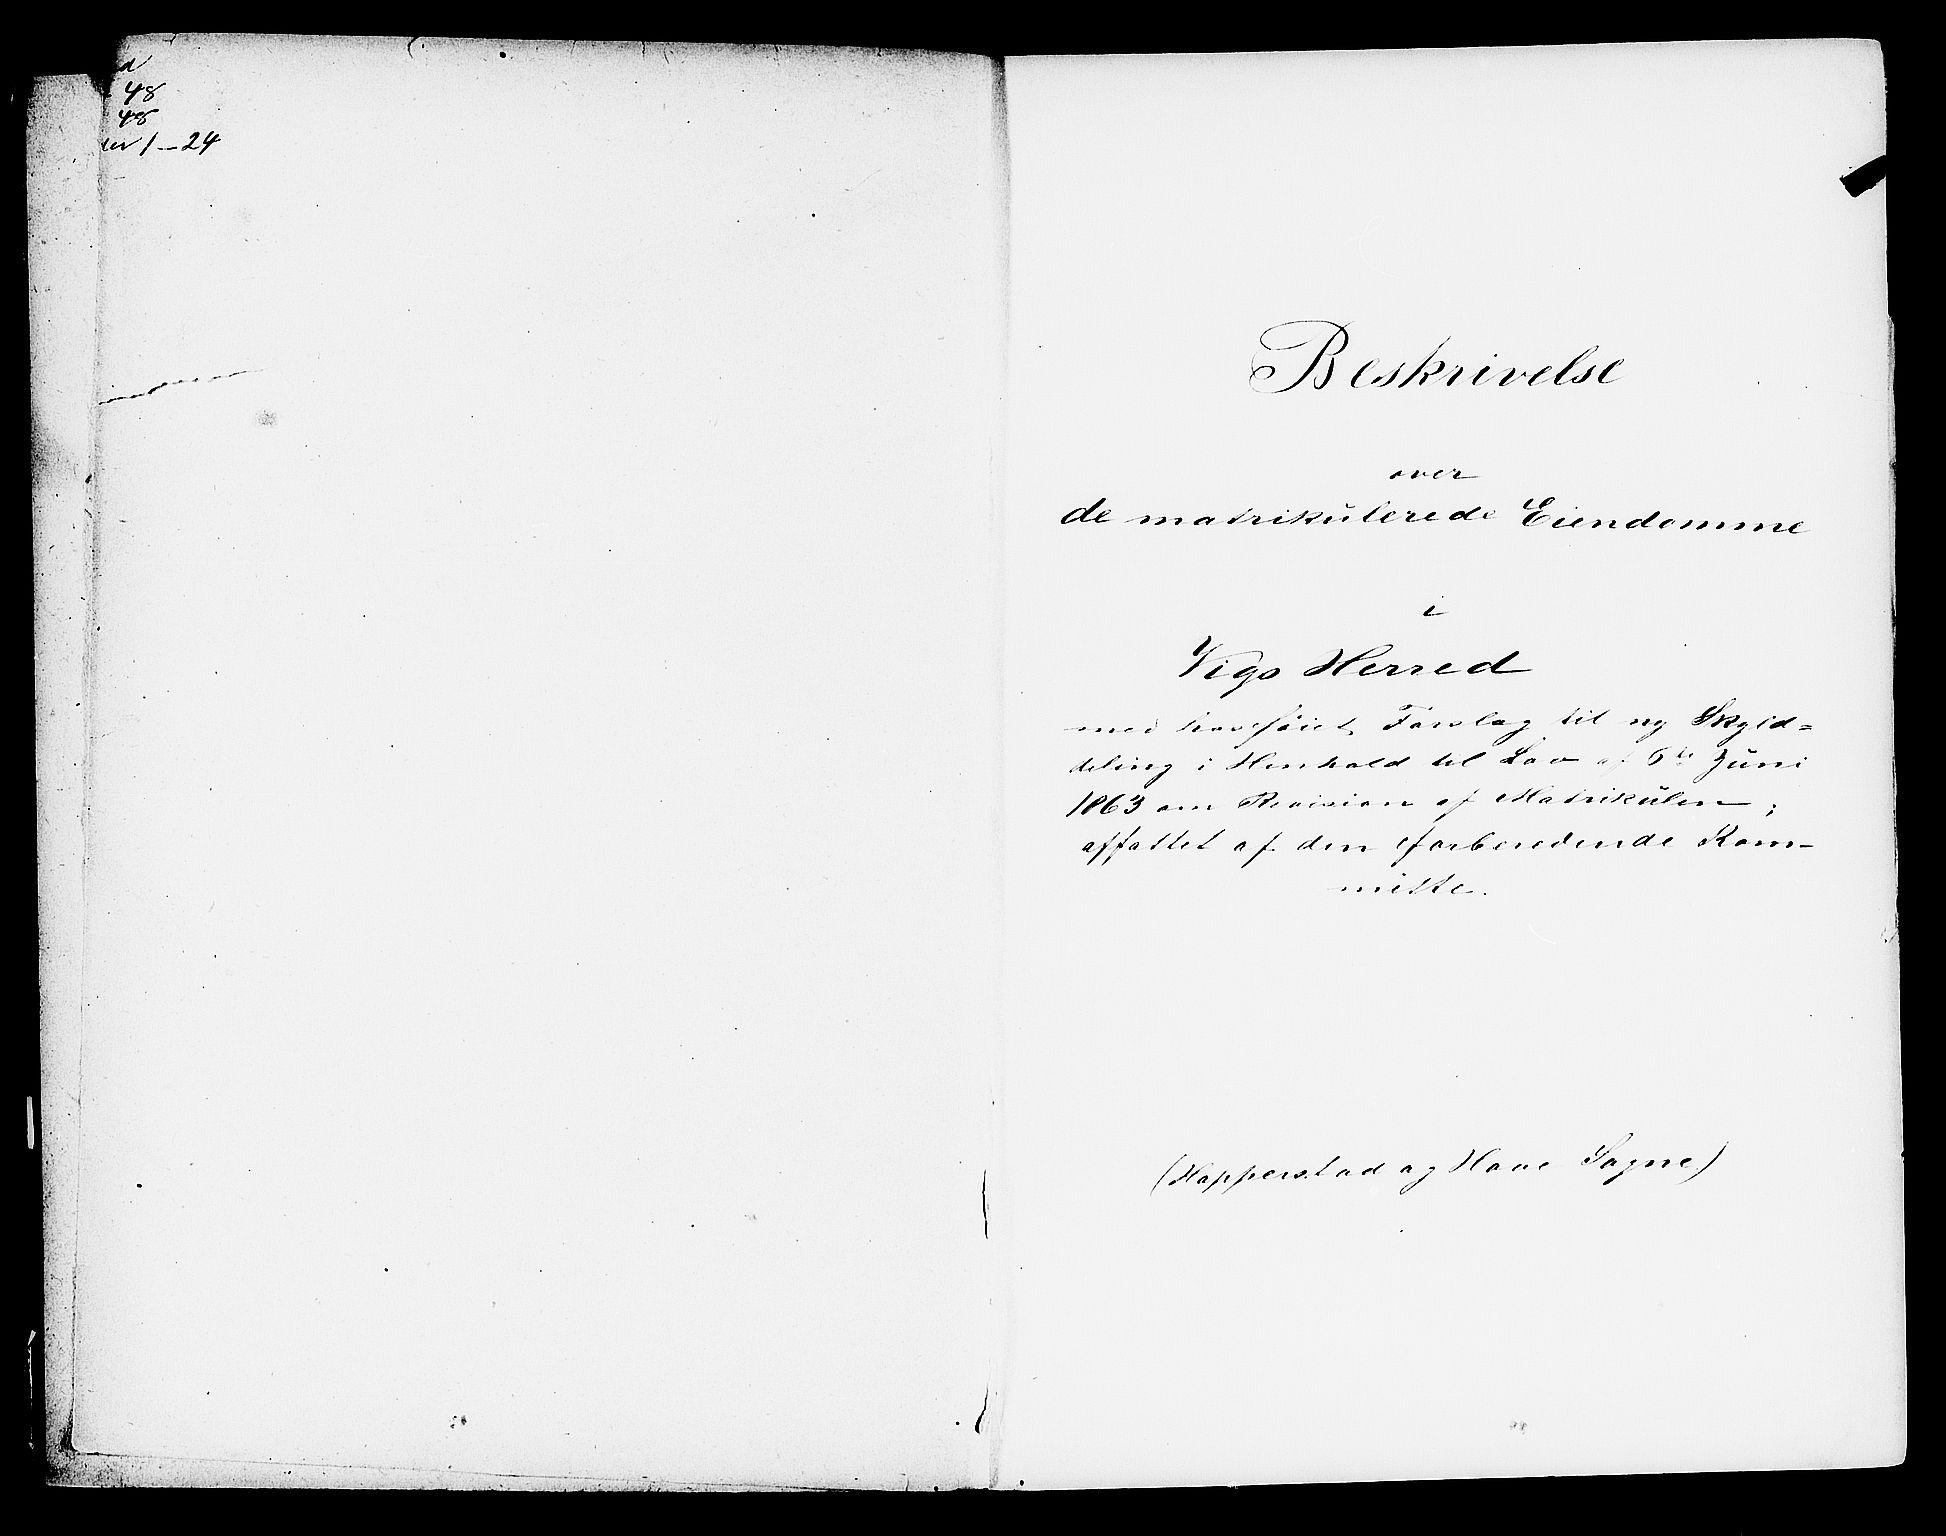 48
48
1-24
Beskrivelse
over
de matrikulerede Eiendomme
i
Vigs Herred
med hosføiet Forslag til ny Skyld=
deling i Henhold til Lov af 6te Juni
1863 om Revision af Matrikulen;
affattet af den forberedende Kom-
mitte.
(Hopperstad og Hove Sogne)